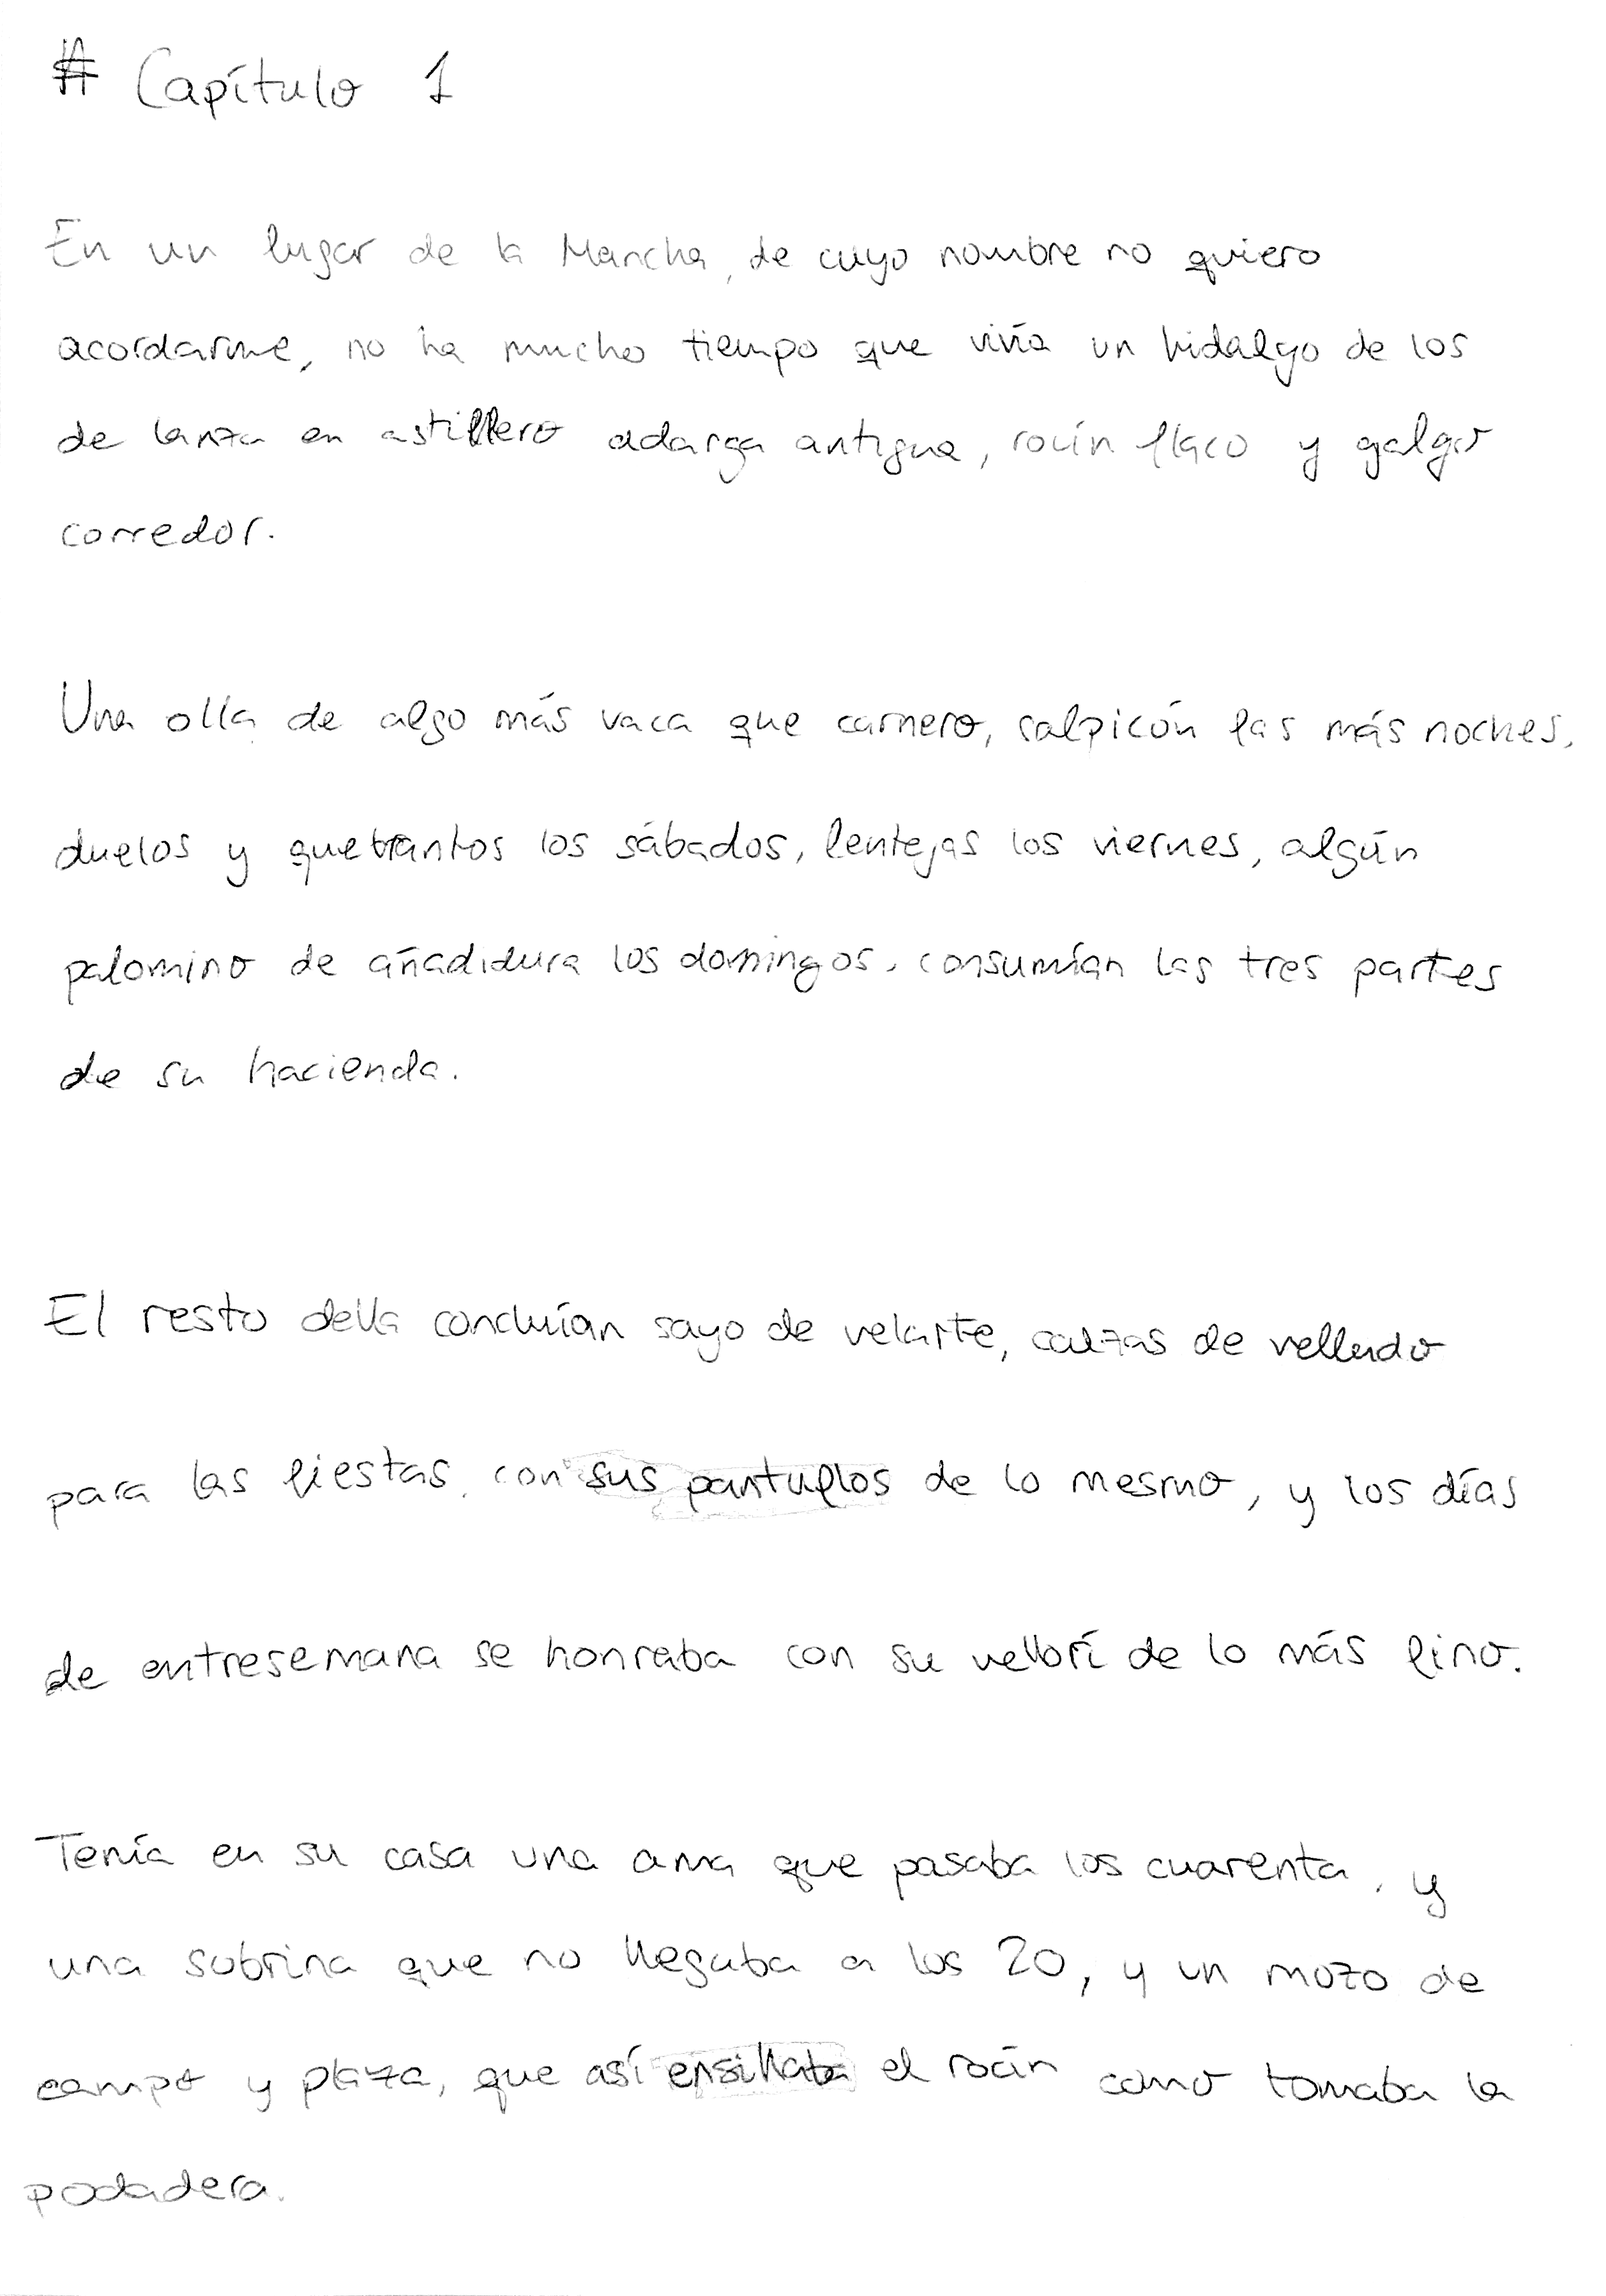 # Capítulo 1
En un lugar de la Mancha, de cuyo nombre no quiero
acordarme, no ha mucho tiempo que vivía un hidalgo de los
de lanza en astillero adarga antigua, rocín flaco y galgo
corredor.
Una olla de algo más vaca que carnero, salpicón las más noches,
duelos y quebrantos los sábados, lentejas los viernes, algún
palomino de añadidura los domingos, consumían las tres partes
de su hacienda.
El resto della concluían sayo de velarte, calzas de velludo
para las fiestas, con sus pantuflos de lo mesmo, y los días
de entresemana se honraba con su vellorí de lo más fino.
Tenía en su casa una ama que pasaba los cuarenta, y
una sobrina que no llegaba a los 20, y un mozo de
campo y plaza, que así ensillaba el rocín como tomaba la
podadera.